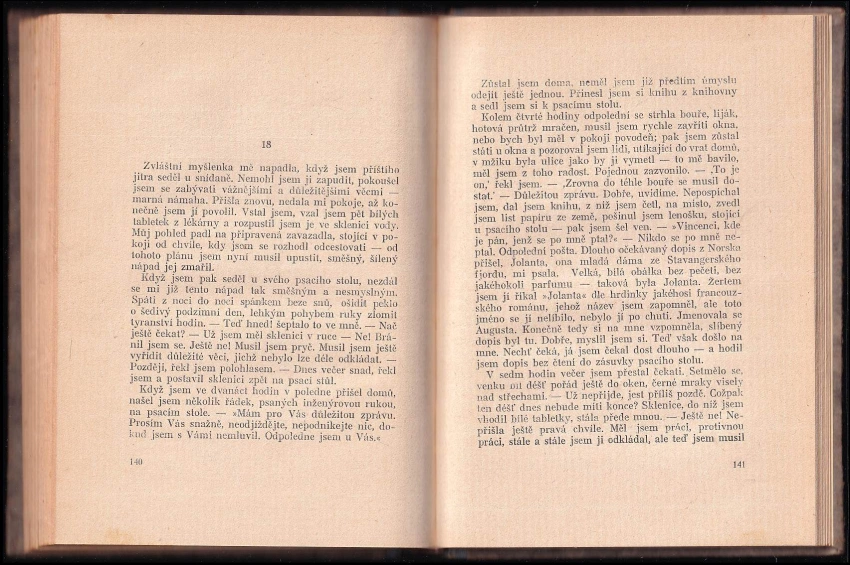 18
Zvláštní myšlenka mě napadla, když jsem příštího
jitra seděl u snídaně. Nemohl jsem ji zapudit, pokoušel
jsem se zabývati vážnějšími a důležitějšími věcmi —
marná námaha. Přišla znovu, nedala mi pokoje, až ko-
nečně jsem jí povolil. Vstal jsem, vzal jsem pět bílých
tabletek z lékárny a rozpustil jsem je ve sklenici vody.
Můj pohled padl na připravená zavazadla, stojící v po-
koji od chvíle, kdy jsem se rozhodl odcestovati — od
tohoto plánu jsem nyní musil upustit, směšný, šílený
nápad jej zmařil.
Když jsem pak seděl u svého psacího stolu, nezdál
se mi již tento nápad tak směšným a nesmyslným.
Spáti z noci do noci spánkem beze snů, ošidit peklo
o šedivý podzimní den, lehkým pohybem ruky zlomit
tyranství hodin. — Teď hned! šeptalo to ve mně. — Nač
ještě čekat? — Už jsem měl sklenici v ruce — Ne! Brá-
nil jsem se. Ještě ne! Musil jsem pryč. Musil jsem ještě
vyřídit důležité věci, jichž nebylo lze déle odkládat. —
Později, řekl jsem polohlasem. — Dnes večer snad, řekl
jsem a postavil sklenici zpět na psací stůl.
Když jsem ve dvanáct hodin v poledne přišel domů,
našel jsem několik řádek, psaných inženýrovou rukou,
na psacím stole. — »Mám pro Vás důležitou zprávu.
Prosím Vás snažně, neodjíždějte, nepodnikejte nic, do-
kud jsem s Vámi nemluvil. Odpoledne jsem u Vás.«
140
Zůstal jsem doma, neměl jsem již předtím úmyslu
odejít ještě jednou. Přinesl jsem si knihu z knihovny
a sedl jsem si k psacímu stolu.
Kolem čtvrté hodiny odpolední se strhla bouře, liják,
hotová průtrž mračen, musil jsem rychle zavříti okna,
nebo bych byl měl v pokoji povodeň; pak jsem zůstal
státi u okna a pozoroval jsem lidi, utíkající do vrat domů,
v mžiku byla ulice jako by ji vymetl — to mě bavilo,
měl jsem z toho radost. Pojednou zazvonilo. — ‚To je
on,‘ řekl jsem. — ‚Zrovna do téhle bouře se musil do-
stat.‘ — Důležitou zprávu. Dobře, uvidíme. Nepospíchal
jsem, dal jsem knihu, z níž jsem četl, na místo, zvedl
jsem list papíru ze země, pošinul jsem lenošku, stojící
u psacího stolu — pak jsem šel ven. — »Vincenci, kde
je pán, jenž se po mně ptal?« — Nikdo se po mně ne-
ptal. Odpolední pošta. Dlouho očekávaný dopis z Norska
přišel, Jolanta, ona mladá dáma ze Stavangerského
fjordu, mi psala. Velká, bílá obálka bez pečeti, bez
jakéhokoli parfumu — taková byla Jolanta. Žertem
jsem jí říkal »Jolanta« dle hrdinky jakéhosi francouz-
ského románu, jehož název jsem zapomněl, ale toto
jméno se jí nelíbilo, nebylo jí po chuti. Jmenovala se
Augusta. Konečně tedy si na mne vzpomněla, slíbený
dopis byl tu. Dobře, myslil jsem si. Teď však došlo na
mne. Nechť čeká, já jsem čekal dost dlouho — a hodil
jsem dopis bez čtení do zásuvky psacího stolu.
V sedm hodin večer jsem přestal čekati. Setmělo se,
venku on déšť pořád ještě do oken, černé mraky visely
nad střechami. — Už nepřijde, jest příliš pozdě. Cožpak
ten déšť dnes nebude míti konce? Sklenice, do níž jsem
vhodil bílé tabletky, stála přede mnou. — Ještě ne! Ne-
přišla ještě pravá chvíle. Měl jsem práci, protivnou
práci, stále a stále jsem ji odkládal, ale teď jsem musil
141